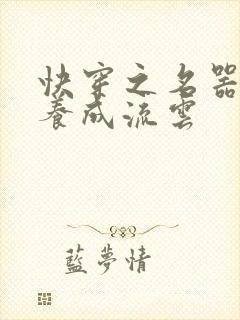 快穿之名器
養成流雲
藍夢情